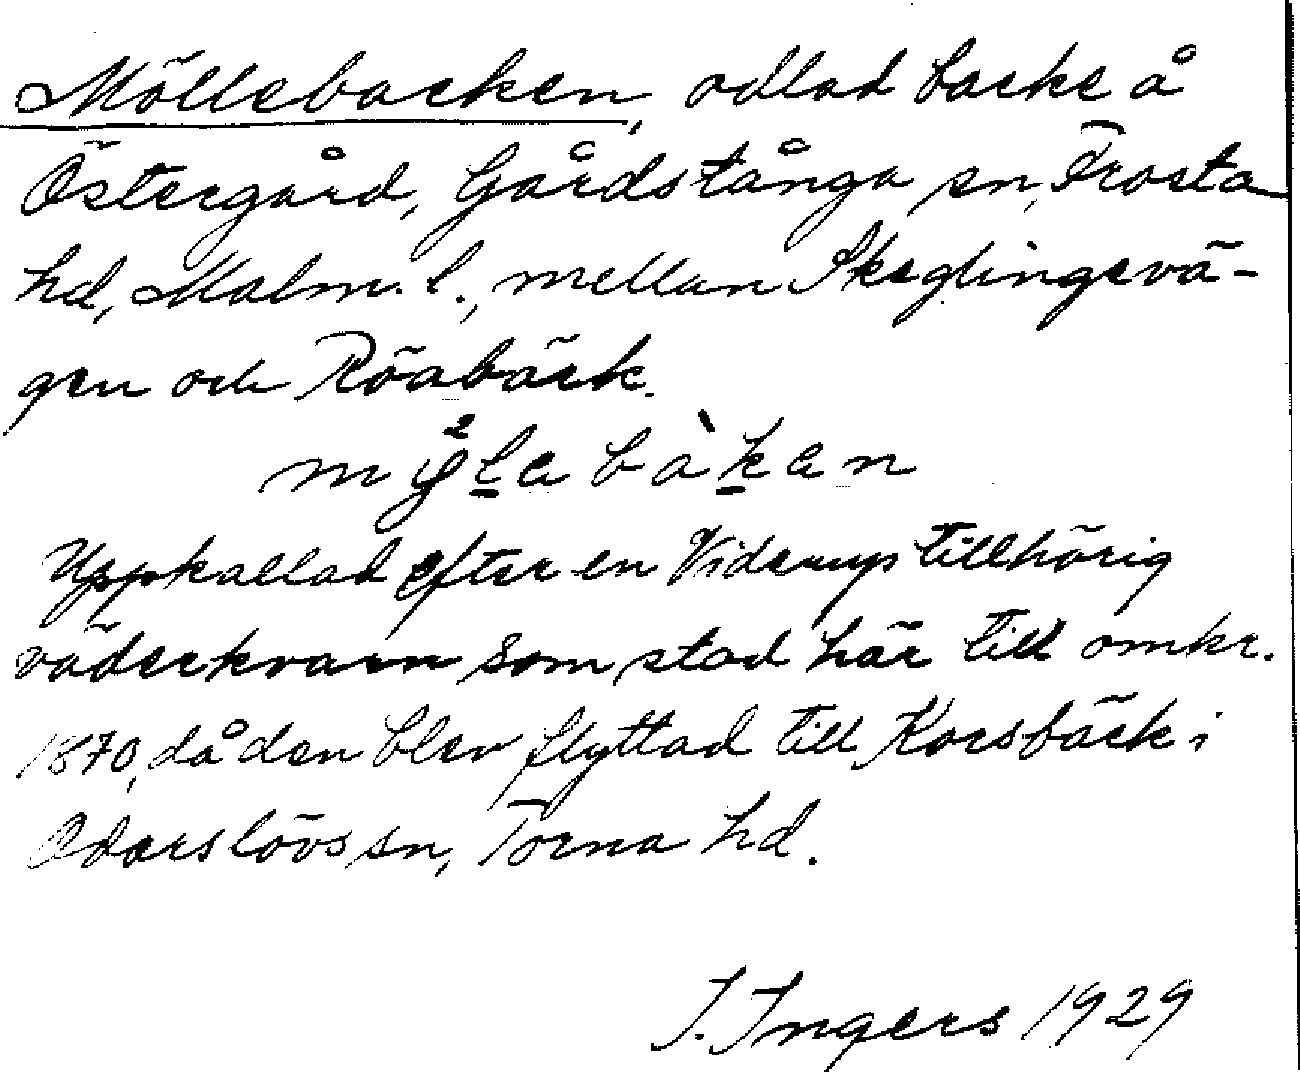 Möllebacken, odlad backe å
Östergård, Gårdstånga sn, Frosta
hd, Malm. l., mellan Skeglingevä-
gen och Röabäck.
Uppkallad efter en Viderup tillhörig
väderkvarn som stod här till omkr.
1870, då den blev flyttad till Korsbäck i
Odarslövs sn, Torna hd.
I. Ingers 1929